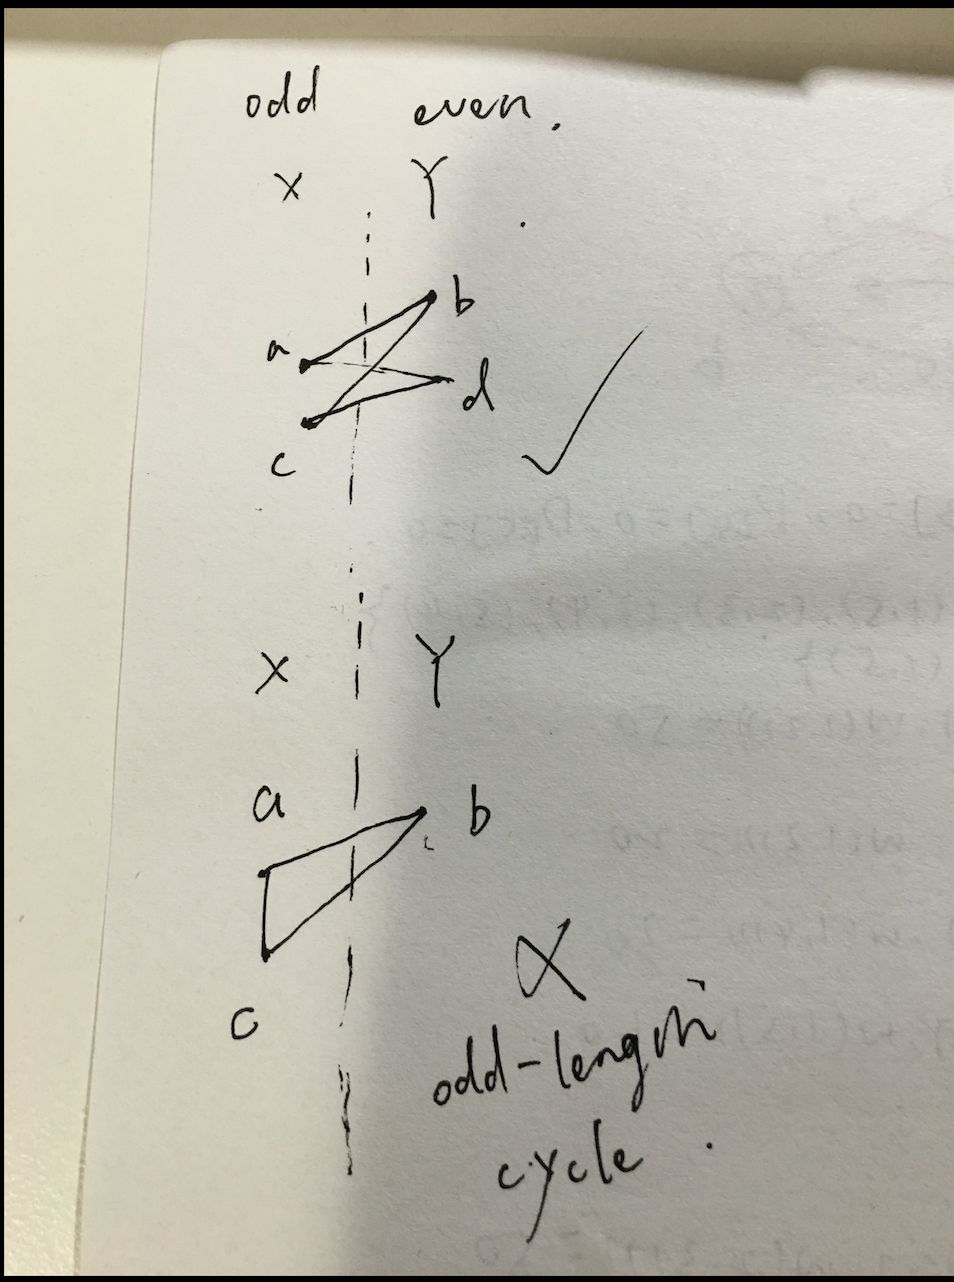 odd even.
X Y
b
a
d
c
X Y
a b
c
odd-length
cycle.